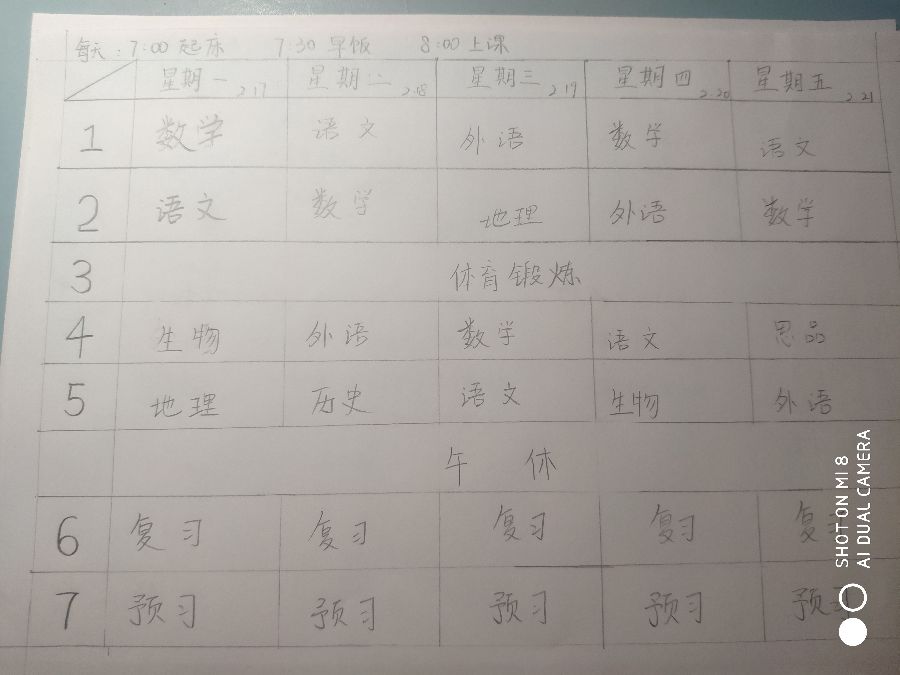 每天：7:00 起床 7:30 早饭 8:00 上课
星期一 2.17 星期二 2.18 星期三 2.19 星期四 2.20 星期五 2.21
1 数学 语文 外语 数学 语文
2 语文 数学 地理 外语 数学
3 体育锻炼
4 生物 外语 数学 语文 思品
5 地理 历史 语文 生物 外语
午休
6 复习 复习 复习 复习 复习
7 预习 预习 预习 预习 预习
SHOT ON MI 8
AI DUAL CAMERA